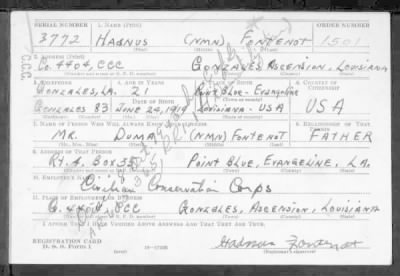 SERIAL NUMBER 1. NAME (Print) ORDER NUMBER
3772 HADNUS (NMN) FONTENOT 1501
(First) (Middle) (Last)
2. ADDRESS (Print)
Co. 4404, CCC GONZALES, ASCENSION, LOUISIANA
(Town) (County) (State)
3. TELEPHONE 4. AGE IN YEARS 5. PLACE OF BIRTH 6. COUNTRY OF CITIZENSHIP
GONZALES, LA. 21 POINT BLUE - EVANGELINE
DATE OF BIRTH
GONZALES 83 JUNE 24, 1919 LOUISIANA - USA USA
7. NAME OF PERSON WHO WILL ALWAYS KNOW YOUR ADDRESS 8. RELATIONSHIP OF THAT PERSON
MR. DUMA (NMN) FONTENOT FATHER
(Mr., Mrs., Miss) (First) (Middle) (Last)
9. ADDRESS OF THAT PERSON
Rt. 4, Box 35 POINT BLUE, EVANGELINE, LA.
(Town) (County) (State)
10. EMPLOYER'S NAME
Civilian Conservation Corps
11. PLACE OF EMPLOYMENT OR BUSINESS
Co. 4404, CCC GONZALES, ASCENSION, LOUISIANA
(Town) (County) (State)
I AFFIRM THAT I HAVE VERIFIED ABOVE ANSWERS AND THAT THEY ARE TRUE.
REGISTRATION CARD
D. S. S. Form 1 (over) Hadnus Fontenot
(Registrant's signature)